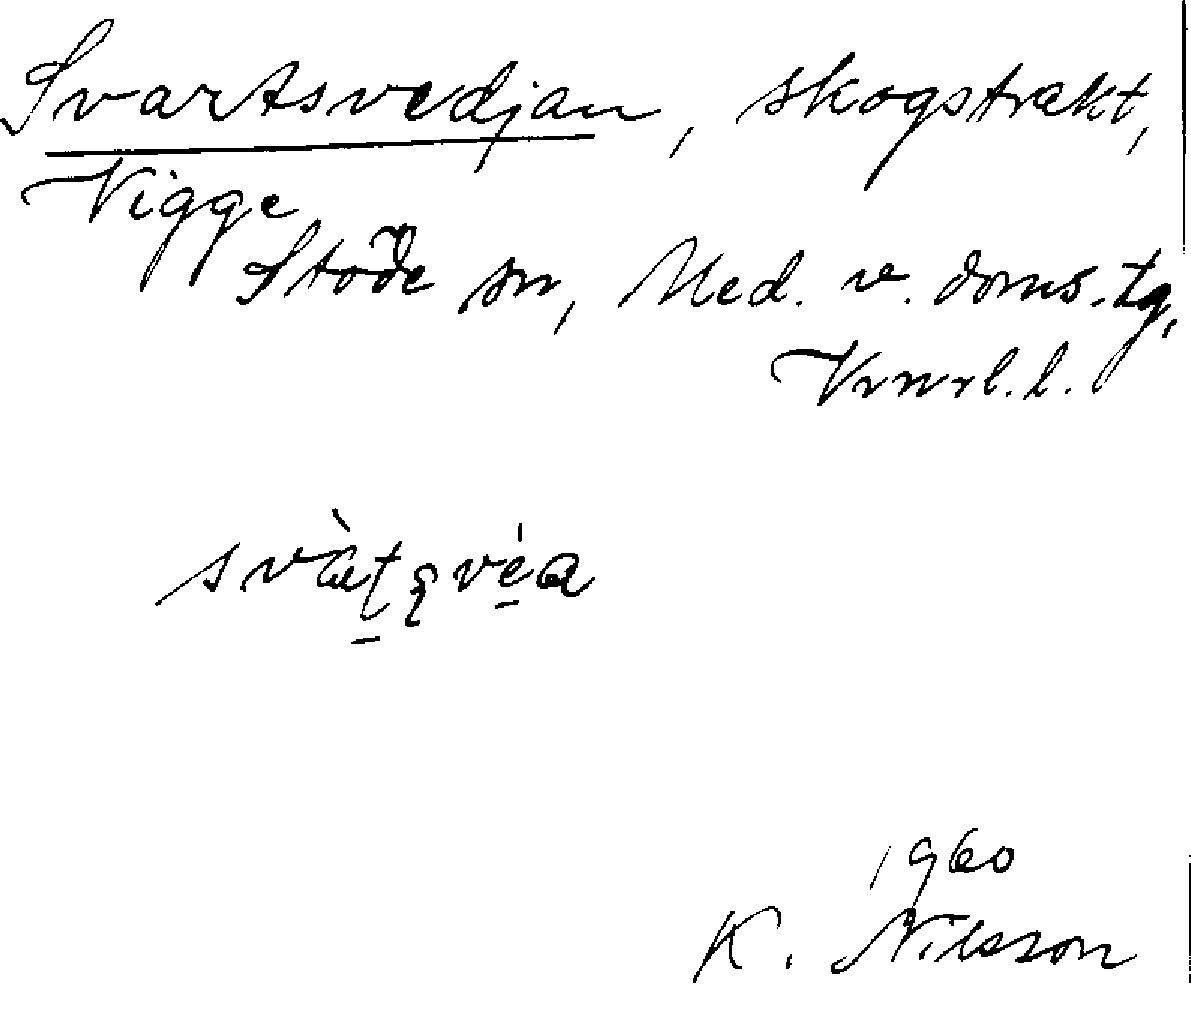 Svartsvedjan, skogstrakt,
Vigge
Stöde sn, Med. v. doms.tg,
Vrnrl. l.
1960
K. Nilsson